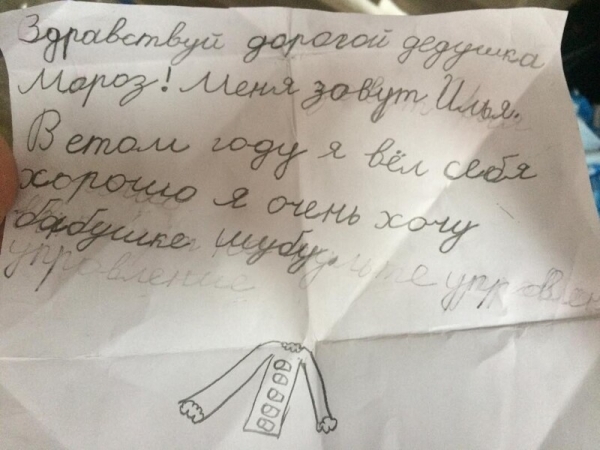 Здравствуй дорогой дедушка
Мороз! Меня зовут Илья.
В етом году я вёл себя
хорошо я очень хочу
бабушке шубу.
упровление